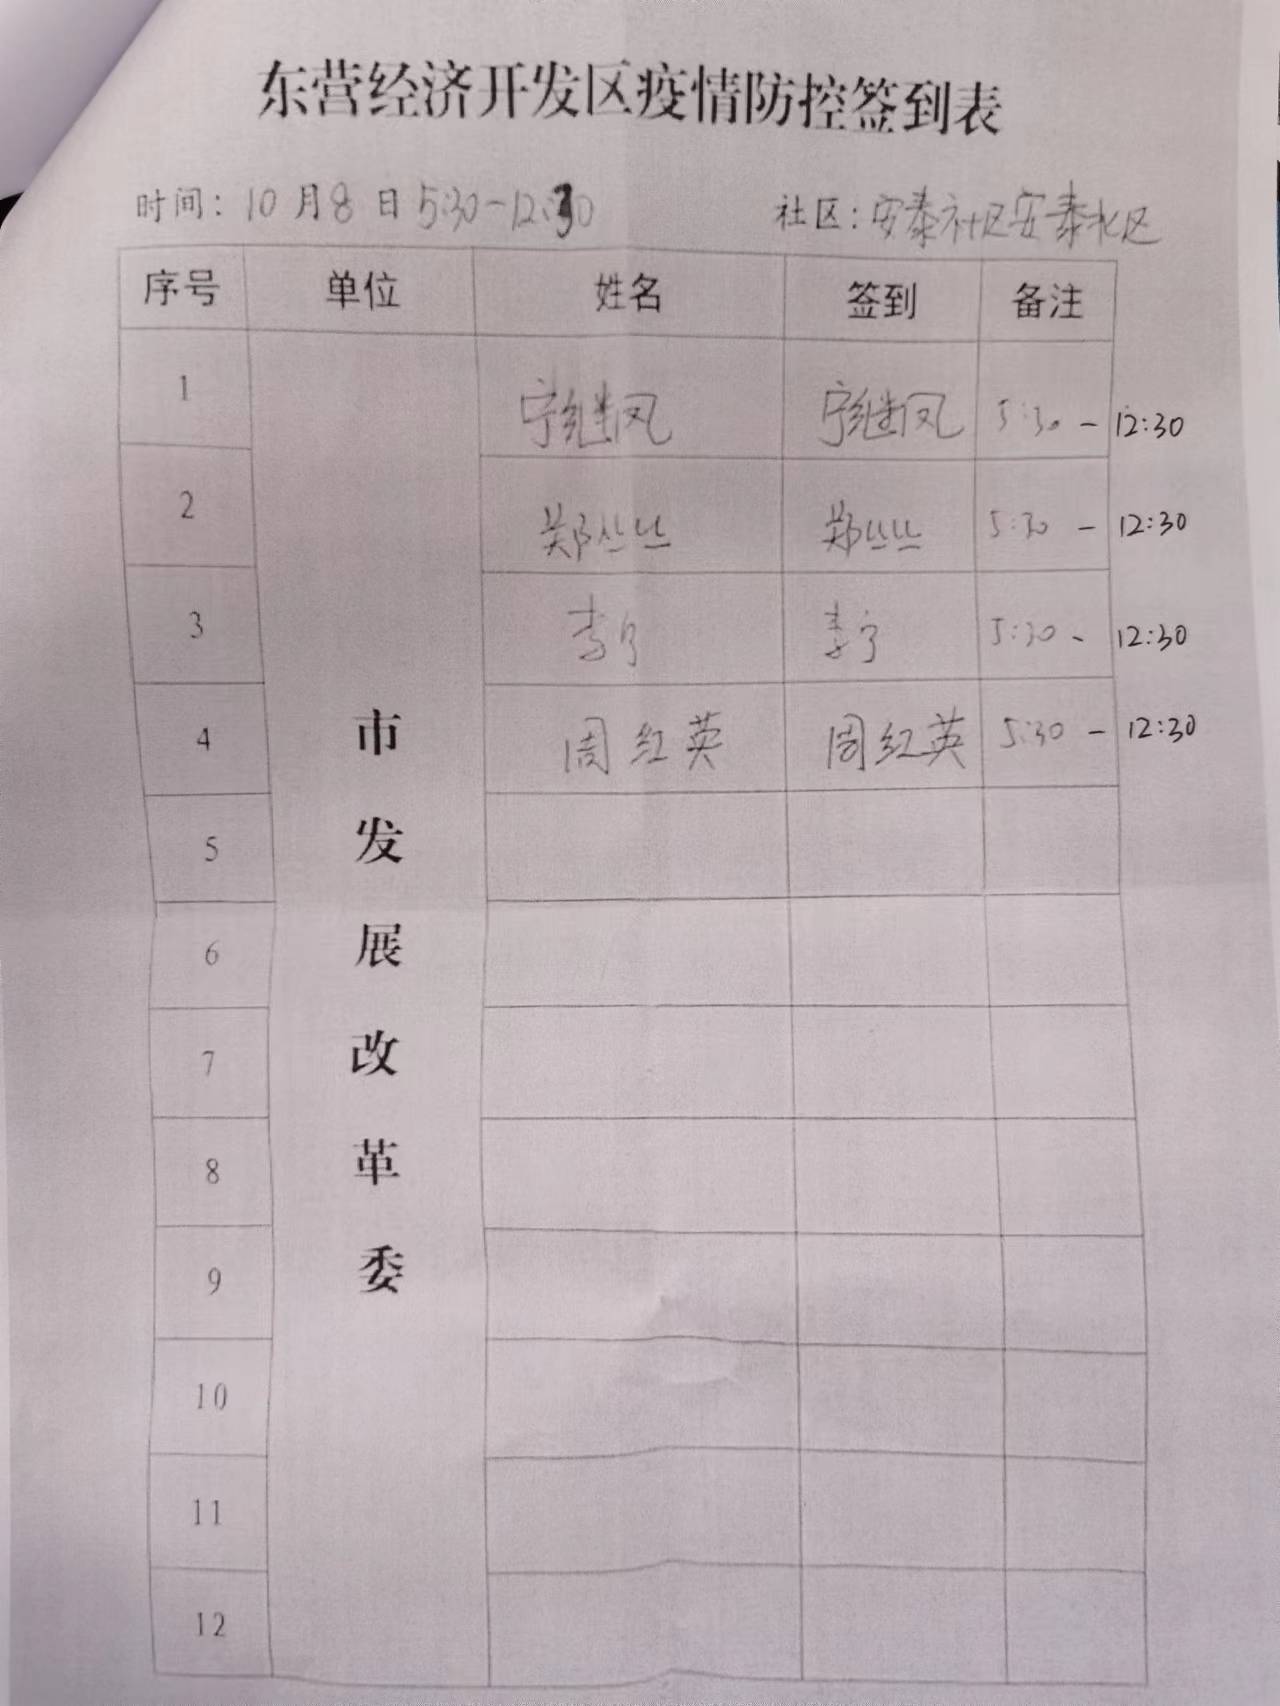 东营经济开发区疫情防控签到表
时间：10月8日5:30-12:30 社区：安泰社区安泰北区
序号 单位 姓名 签到 备注
1 宁继凤 宁继凤 5:30-12:30
2 郑丛丛 郑丛丛 5:30-12:30
3 李宁 李宁 5:30-12:30
4 周红英 周红英 5:30-12:30
市发展改革委
5
6
7
8
9
10
11
12